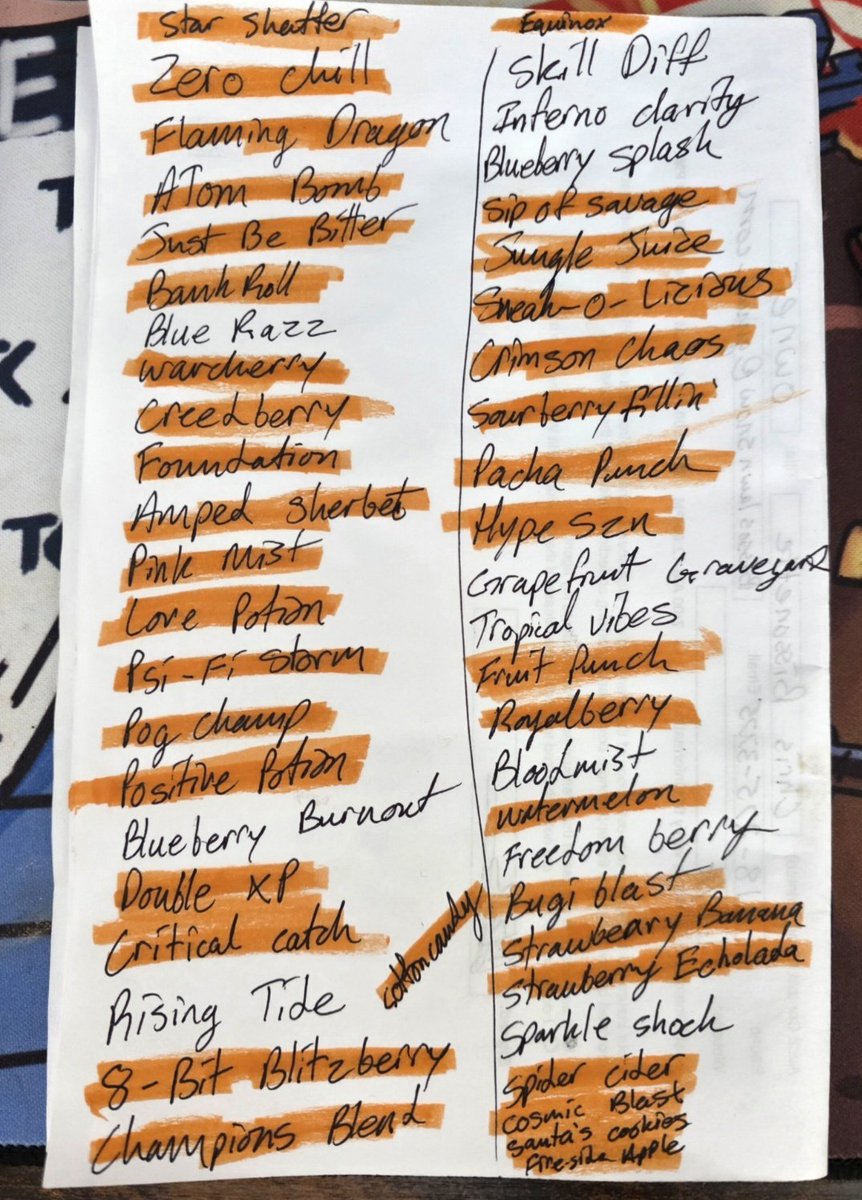 Star Shatter
Zero chill
Flaming Dragon
ATom Bomb
Just Be Bitter
Bank Roll
Blue Razz
warcherry
Creedberry
Foundation
Amped Sherbet
Pink Mist
Love Potion
Psi-Fi Storm
Pog champ
Positive Potion
Blueberry Burnout
Double XP
Critical catch
Rising Tide
8-Bit Blitzberry
Champions Blend
cotton candy
Equinox
Skill Diff
Inferno clarity
Blueberry splash
Sip of savage
Jungle Juice
Sneak-O-Licious
Crimson Chaos
Sourberry fillin'
Pacha Punch
Hype SZN
Grapefruit Graveyard
Tropical vibes
Fruit Punch
Royalberry
Bloodmist
watermelon
Freedom berry
Bugi blast
Strawbeary Banana
Strawberry Echolada
Sparkle shock
Spider cider
Cosmic Blast
Santa's cookies
Fire-side Apple